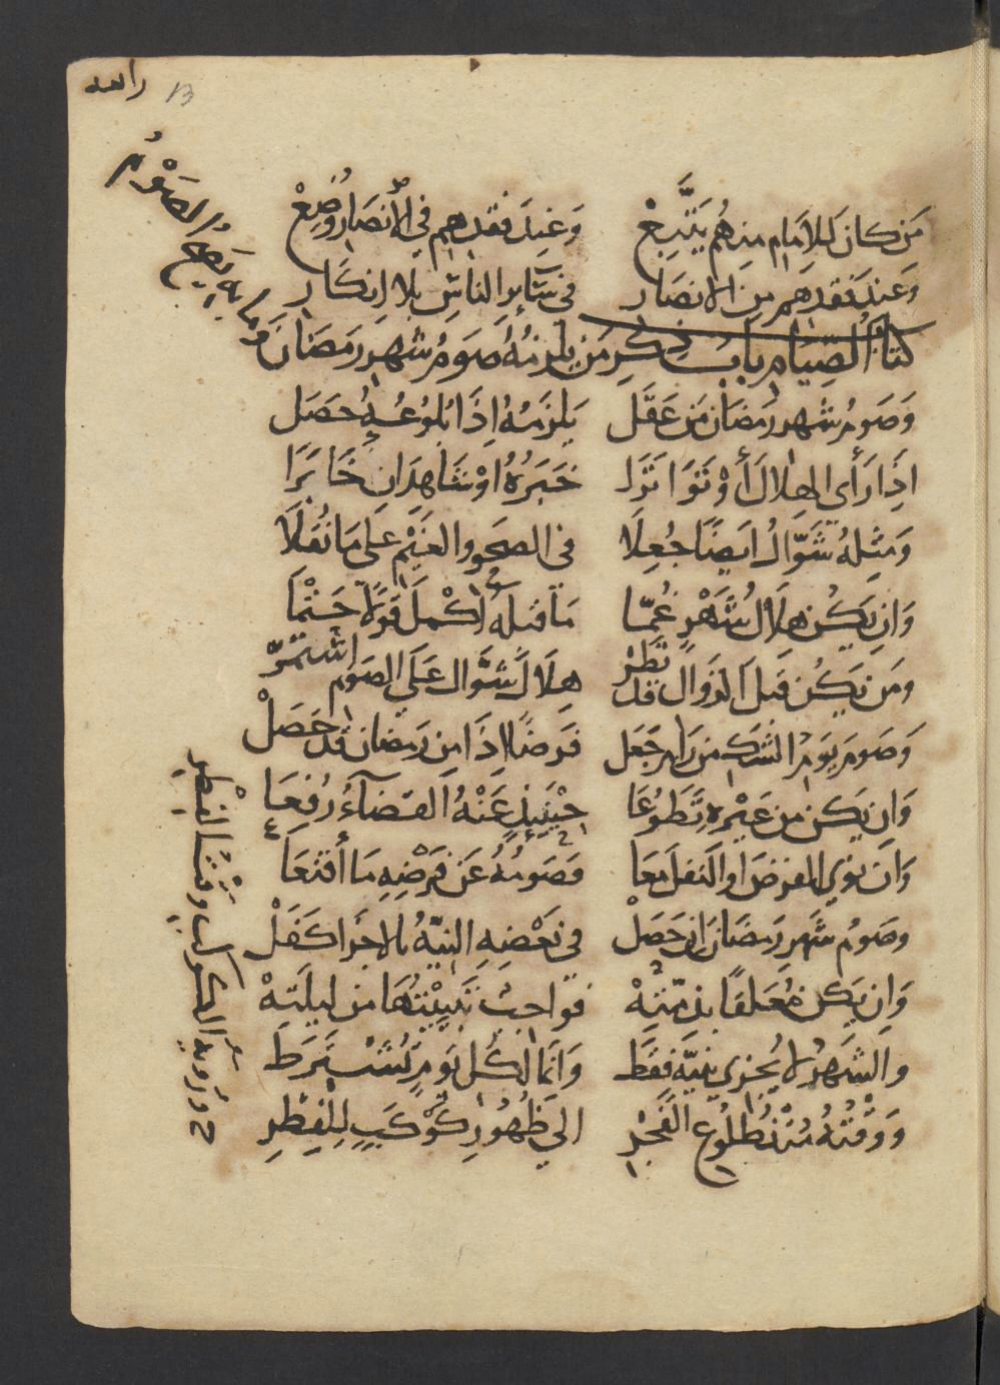 رابعه 13
مَن كان للامام منهُم يَتَّبِعْ وَعِندَ فقدهم في الأنصار وُضِعْ
وَعِندَ فقدهم من الانصار في سَآئِرِ الناسِ بلا إنكَارِ
كتابُ الصِّيَامِ بابُ ذِكرِ مَن يلزمُهُ صَومُ شهرِ رمَضَانَ وما به يَصِحُّ الصَوْمُ
وَصَومُ شهرِ رَمضَانَ مَن عَقَل يَلزَمُهُ اِذَا بُلوغُهُ حَصَل
اذَا رَأى الهِلالَ أَوْ تَوَاتَرَا خَبَرُهُ اوْ شَاهِدَانِ خَابَرَا
وَمِثلهُ شَوَّالُ ايضًا جُعِلَا في الصحو والغَيْمِ على مَا نُقِلَا
وَانِ يَكُن هِلَالُ شَهْرٍ غُمَّا مَا قبله أكْمل قَولًا حَتْمَا
ومَن يَكُن قبلَ الزوال قد نَظَرْ هِلَالَ شَوَّال عَلَى الصَوم استَمَرّ
وَصَومَ يَومِ الشَكِ من رام جَعَل فَرضًا اذَا مِن رَمضان قد حَصَلْ
وَان يَكن من غَيْرِهِ تَطَوُّعَا حِيْنَئِذٍ عَنْهُ القَضآءُ رُفِعَا
وَان نوى الفرضَ او النفلَ مَعَا فَصَومُهُ عَن فَرْضِهِ مَا أقنَعَا
وصَومُ شَهرِ رَمضَانَ اِن حَصَلْ في بَعْضِهِ النِيّةُ بالاجزا كَفَلْ
وَاِن يَكن مُعَلقًا بذمّتِهْ فواجبٌ تَبييْتُهَا من ليلَتِهْ
والشَهرُ لا يُجزي بِنيَّةٍ فقَط وَانما لِكُل يَومٍ تُشْتَرَط
وَوَقْتُهُ مُنْذُ طُلُوعِ الفَجْرِ الى ظُهُورِ كَوْكَبٍ لِلْفِطْرِ
ح ورؤية الكوكب وقتُ الفِطْرِ